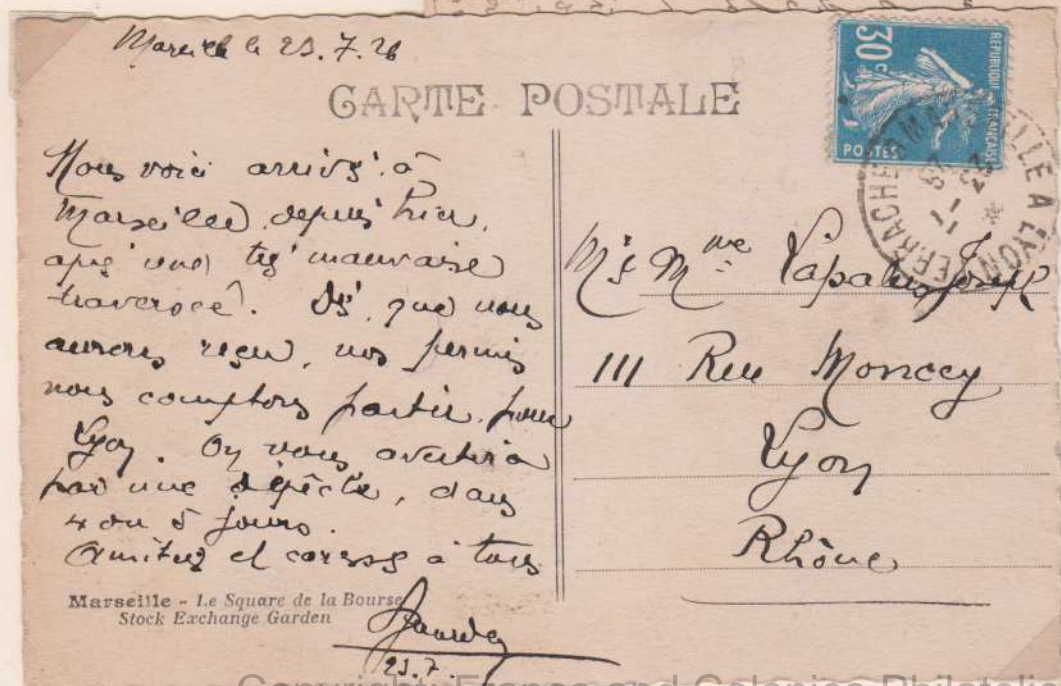 Marseille le 23.7.26
CARTE POSTALE
Nous voici arrivés à
Marseille depuis hier,
après une très mauvaise
traversée. Dès que nous
aurons reçu, nos permis
nous comptons partir pour
Lyon. On vous avertira
par une dépêche, dans
4 ou 5 jours.
Amitiés et caresses à tous
23.7.
Marseille - Le Square de la Bourse
Stock Exchange Garden
30c
REPUBLIQUE FRANÇAISE
POSTES
ELLE A LYON
M. & Mme Joseph
111 Rue Moncey
Lyon
Rhône
Copyright France and Colonies Philatelic